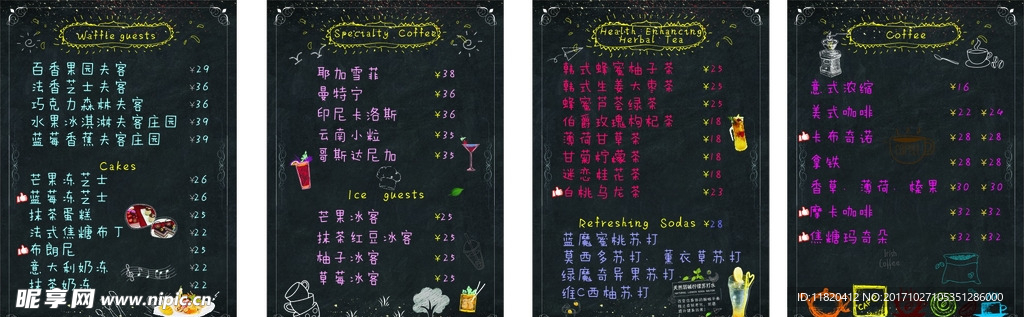 Waffle guests
百香果园夫客 ¥29
法香芝士夫客 ¥36
巧克力森林夫客 ¥36
水果冰淇淋夫客庄园 ¥39
蓝莓香蕉夫客庄园 ¥39
Cakes
芒果冻芝士 ¥26
蓝莓冻芝士 ¥26
抹茶蛋糕 ¥25
法式焦糖布丁 ¥22
布朗尼 ¥25
意大利奶冻 ¥22
抹茶奶冻 ¥22
Specialty Coffee
耶加雪菲 ¥38
曼特宁 ¥36
印尼卡洛斯 ¥36
云南小粒 ¥35
哥斯达尼加 ¥35
Ice guests
芒果冰客 ¥25
抹茶红豆冰客 ¥25
柚子冰客 ¥25
草莓冰客 ¥25
Health Enhancing
Herbal Tea
韩式蜂蜜柚子茶 ¥25
韩式生姜大枣茶 ¥25
蜂蜜芦荟绿茶 ¥25
伯爵玫瑰枸杞茶 ¥18
薄荷甘草茶 ¥18
甘菊柠檬茶 ¥18
迷恋桂花茶 ¥18
白桃乌龙茶 ¥23
Refreshing Sodas ¥28
蓝魔蜜桃苏打
莫西多苏打．薰衣草苏打
绿魔奇异果苏打
维C西柚苏打
Coffee
意式浓缩 ¥16
美式咖啡 ¥22 ¥24
卡布奇诺 ¥28 ¥28
拿铁 ¥28 ¥28
香草．薄荷．榛果 ¥30 ¥30
摩卡咖啡 ¥32 ¥32
焦糖玛奇朵 ¥32 ¥32
昵享网 www.nipic.cn
ID:11820412 NO:20171027105351286000